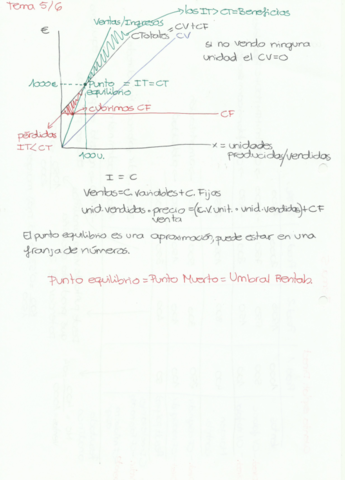 Tema 5/6
los IT>CT=Beneficios
Ventas/Ingresos
€
CTotales = CV+CF
CV
si no vendo ninguna
unidad el CV=0
1000€
Punto = IT=CT
equilibrio
cubrimos CF
CF
pérdidas
IT<CT
100u.
x = unidades
producidas/vendidas
I = C
Ventas=C.Variables+C.Fijos
unid.vendidas · precio venta =(C.V.unit. · unid.vendidas)+CF
El punto equilibrio es una aproximación, puede estar en una
franja de números.
Punto equilibrio = Punto Muerto = Umbral Rentab.